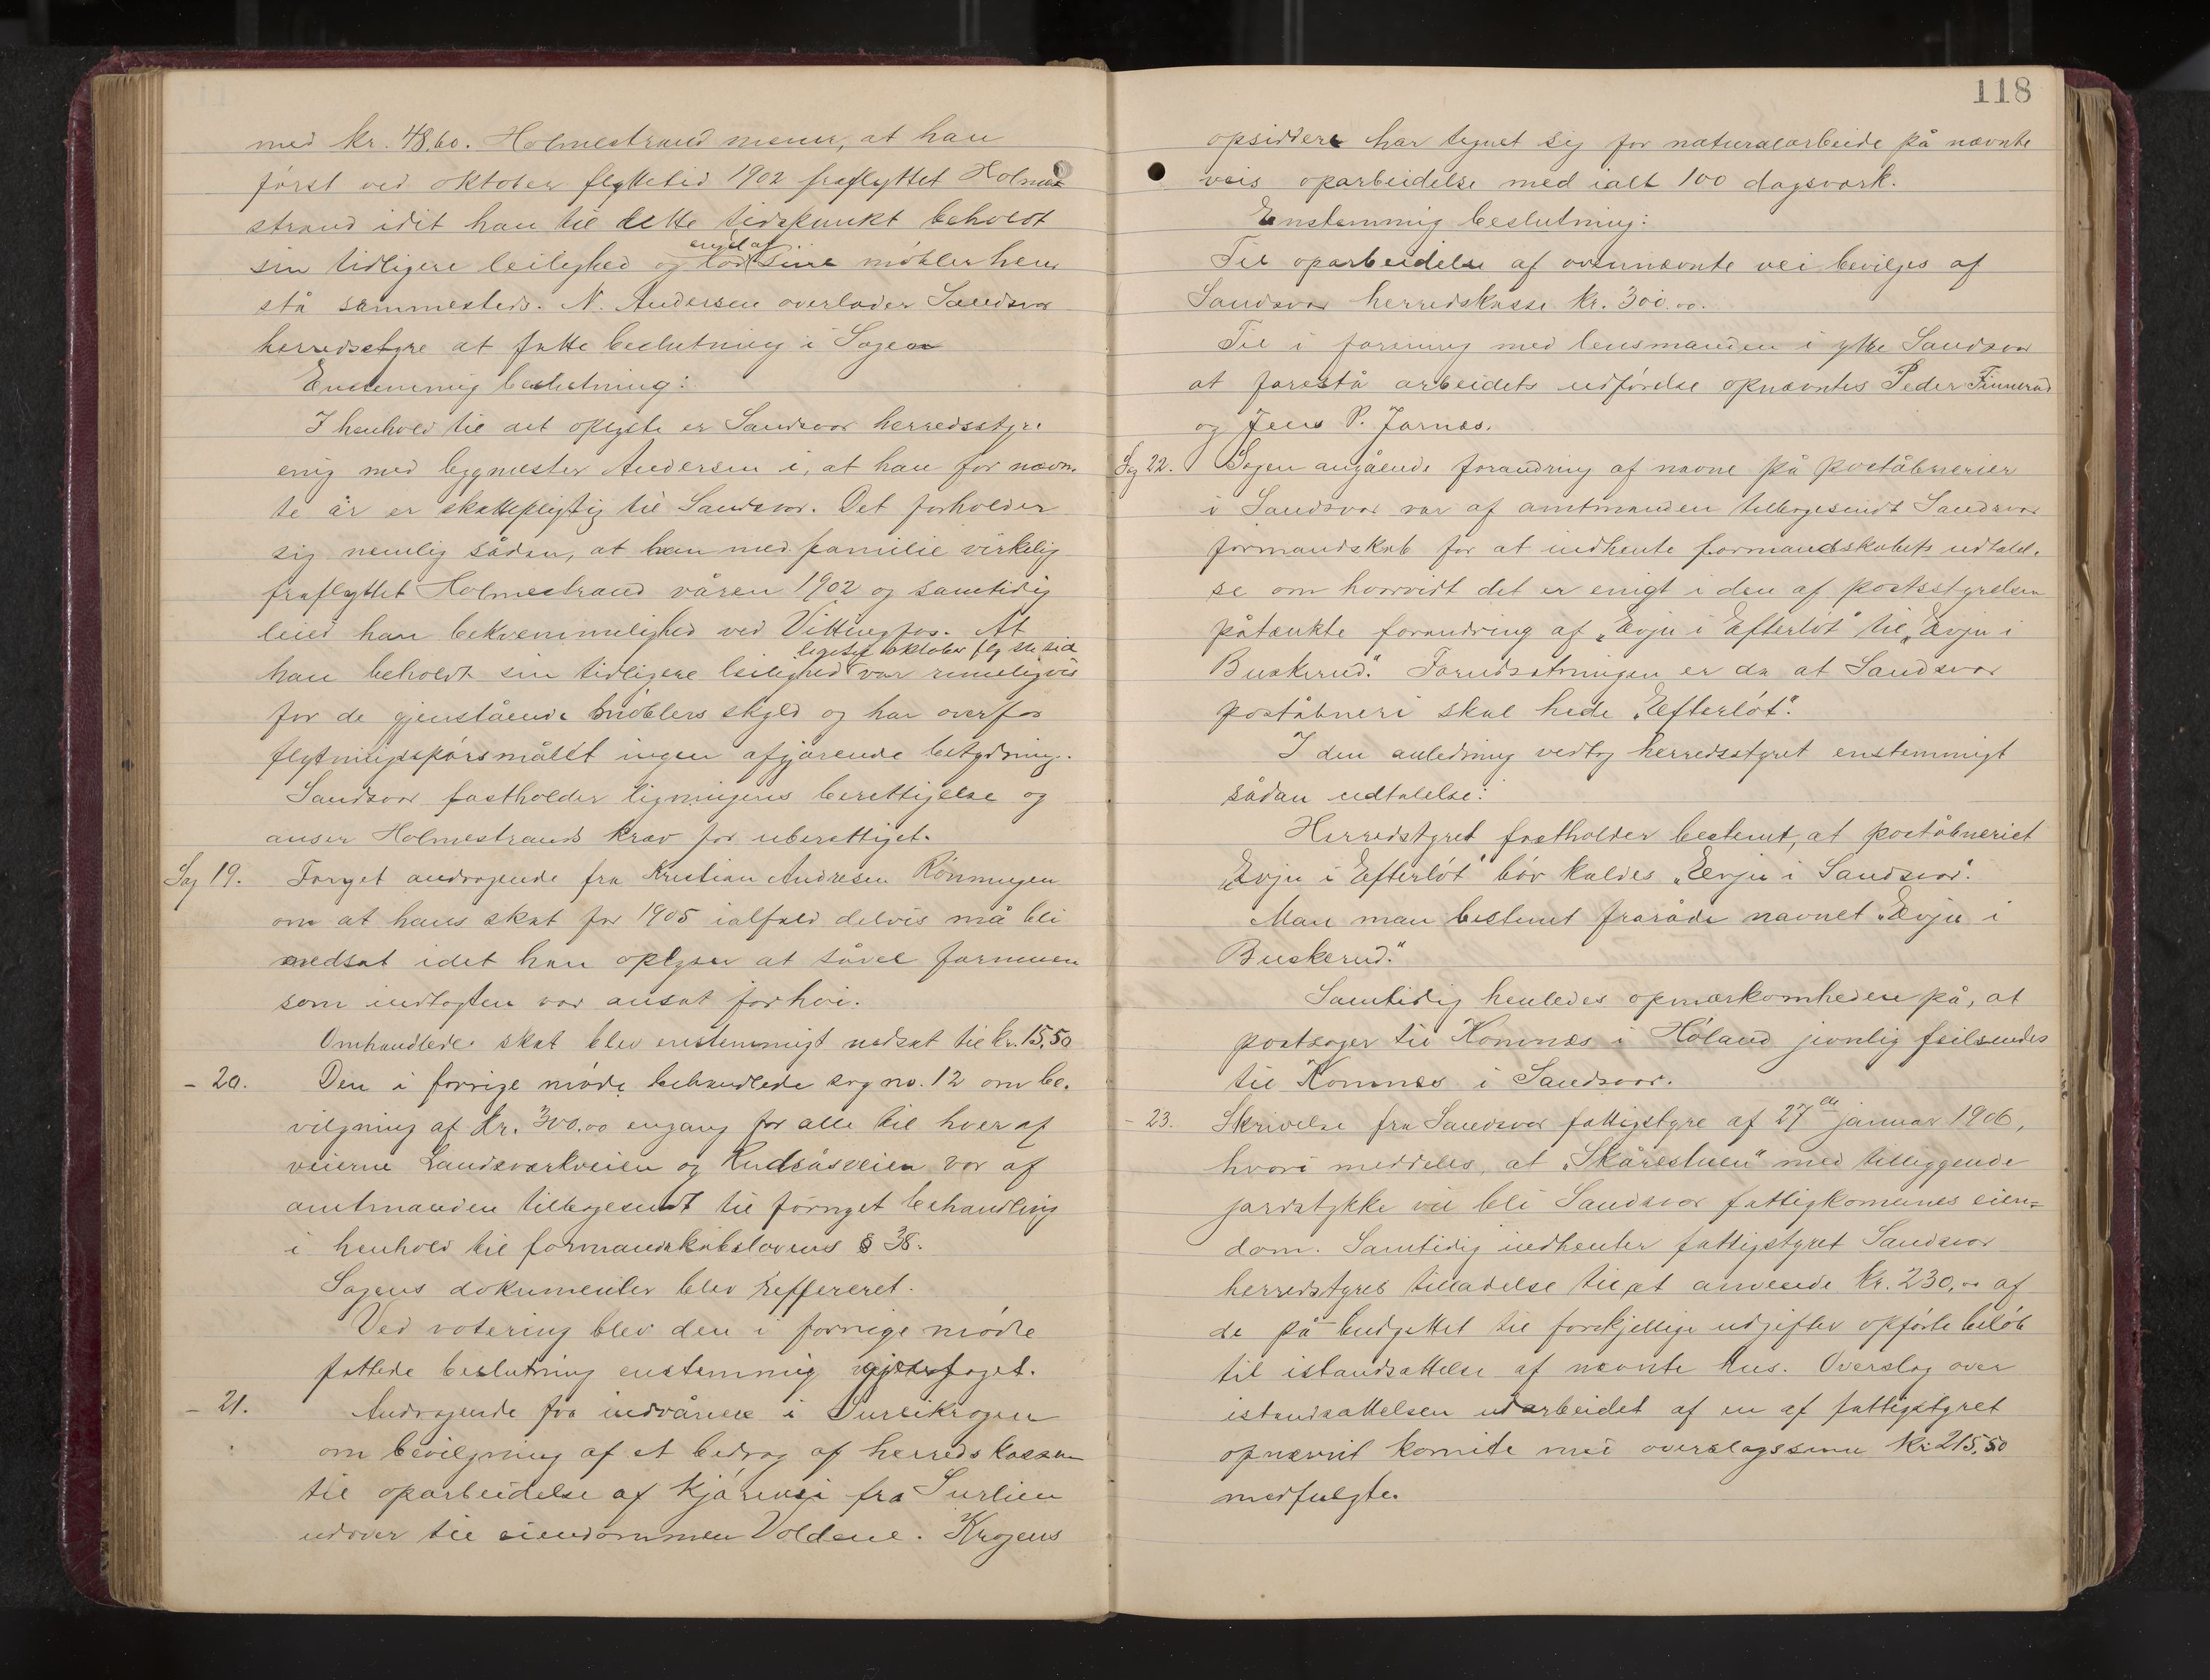 med kr. 48,60. Holmestrand mener, at han
först ved oktober flyttetid 1902 fraflyttet Holme
strand idet han til dette tidspunkt beholdt
sin tidligere leilighed og lod endel af sine möbler hen
stå sammesteds. N. Andersen overlader Sandsvær
herredsstyre at fatte beslutning i Sagen
Enstemmig beslutning:
I henhold til det oplyste er Sandsvær herredsstyre
enig med bygmester Andersen i, at han for nævn-
te år er skattepligtig til Sandsvær. Det forholder
sig nemlig sådan, at han med familie virkelig
fraflyttet Holmestrand våren 1902 og samtidig
leied han bekvemmelighed ved Vittingfos. At
han beholdt sin tidligere leilighed ligetil oktober var rimeligvis
for de gjenstående möblers skyld og har overfor
flytningsspörsmålet ingen afgjørende betydning.
Sandsvær fastholder ligningens berettigelse og
anser Holmestrands krav for uberettiget.
Sag 19. Fornyet andragende fra Kristian Andresen Rönningen
om at hans skat for 1905 ialfald delvis må bli
nedsat idet han oplyser at såvel formuen
som indtægten var ansat for höi.
Omhandlede skat blev enstemmigt nedsat til kr. 15,50
- 20. Den i forrige möde behandlede sag no. 12 om be-
vilgning af kr. 300.00 engang for alle til hver af
veierne Landsværkveien og Kudåsveien var af
amtmanden tilbagesendt til fornyet behandling
i henhold til formandskabslovens § 38.
Sagens dokumenter blev reffereret.
Ved votering blev den i forrige möde
fattede beslutning enstemmig
- 21. Andragende fra indvånere i Surlikrogen
om bevilgning af et bedrag af herredskassen
til oparbeidelse af kjörevei fra Surlien
udover til eiendommen Voldene. Krogens
118
opsiddere har tegnet sig for naturalarbeide på nævnte
veis oparbeidelse med ialt 100 dagsverk.
Enstemmig beslutning:
Til oparbeidelse af ovennævnte vei bevilges af
Sandsvær herredskasse kr. 300.00.
Til i forening med lensmanden i ytre Sandsvær
at forestå arbeidets udförelse opnævntes Peder Finnerud
og Jens P. Jarnæs.
Sag 22. Sagen angående forandring af navne på poståbnerier
i Sandsvær var af amtmanden tilbagesendt Sandsvær
formandskab for at indhente formandskabets udtalel-
se om hvorvidt det er enigt i den af poststyrelsen
påtænkte forandring af „Evju i Efterlöt" til „Evju i
Buskerud." Forudsætningen er da at Sandsvær
poståbneri skal hede „Efterlöt".
I den anledning vedtog herredsstyret enstemmigt
sådan udtalelse:
Herredstyret fastholder bestemt, at poståbneriet
„Evju i Efterlöt" bör kaldes „Evju i Sandsvær".
Man må bestemt fraråde navnet „Evju i
Buskerud."
Samtidig henledes opmærksomheden på, at
postsager til Komnes i Höland jevnlig feilsendes
til Komnes i Sandsvær.
- 23. Skrivelse fra Sandsvær fattigstyre af 27de januar 1906,
hvori meddeles, at „Skårestuen" med tilliggende
jordstykke vil bli Sandsvær fattigkomunes eien=
dom. Samtidig indhenter fattigstyret Sandsvær
herredstyres tilladelse til at anvende kr. 230,00 af
de på budgettet til forskjellige udgifter opförte belöb
til istandsættelse af nævnte hus. Overslag over
istandsættelsen udarbeidet af en af fattigstyret
opnævnt komite med overslagssum kr. 215,50
medfulgte.